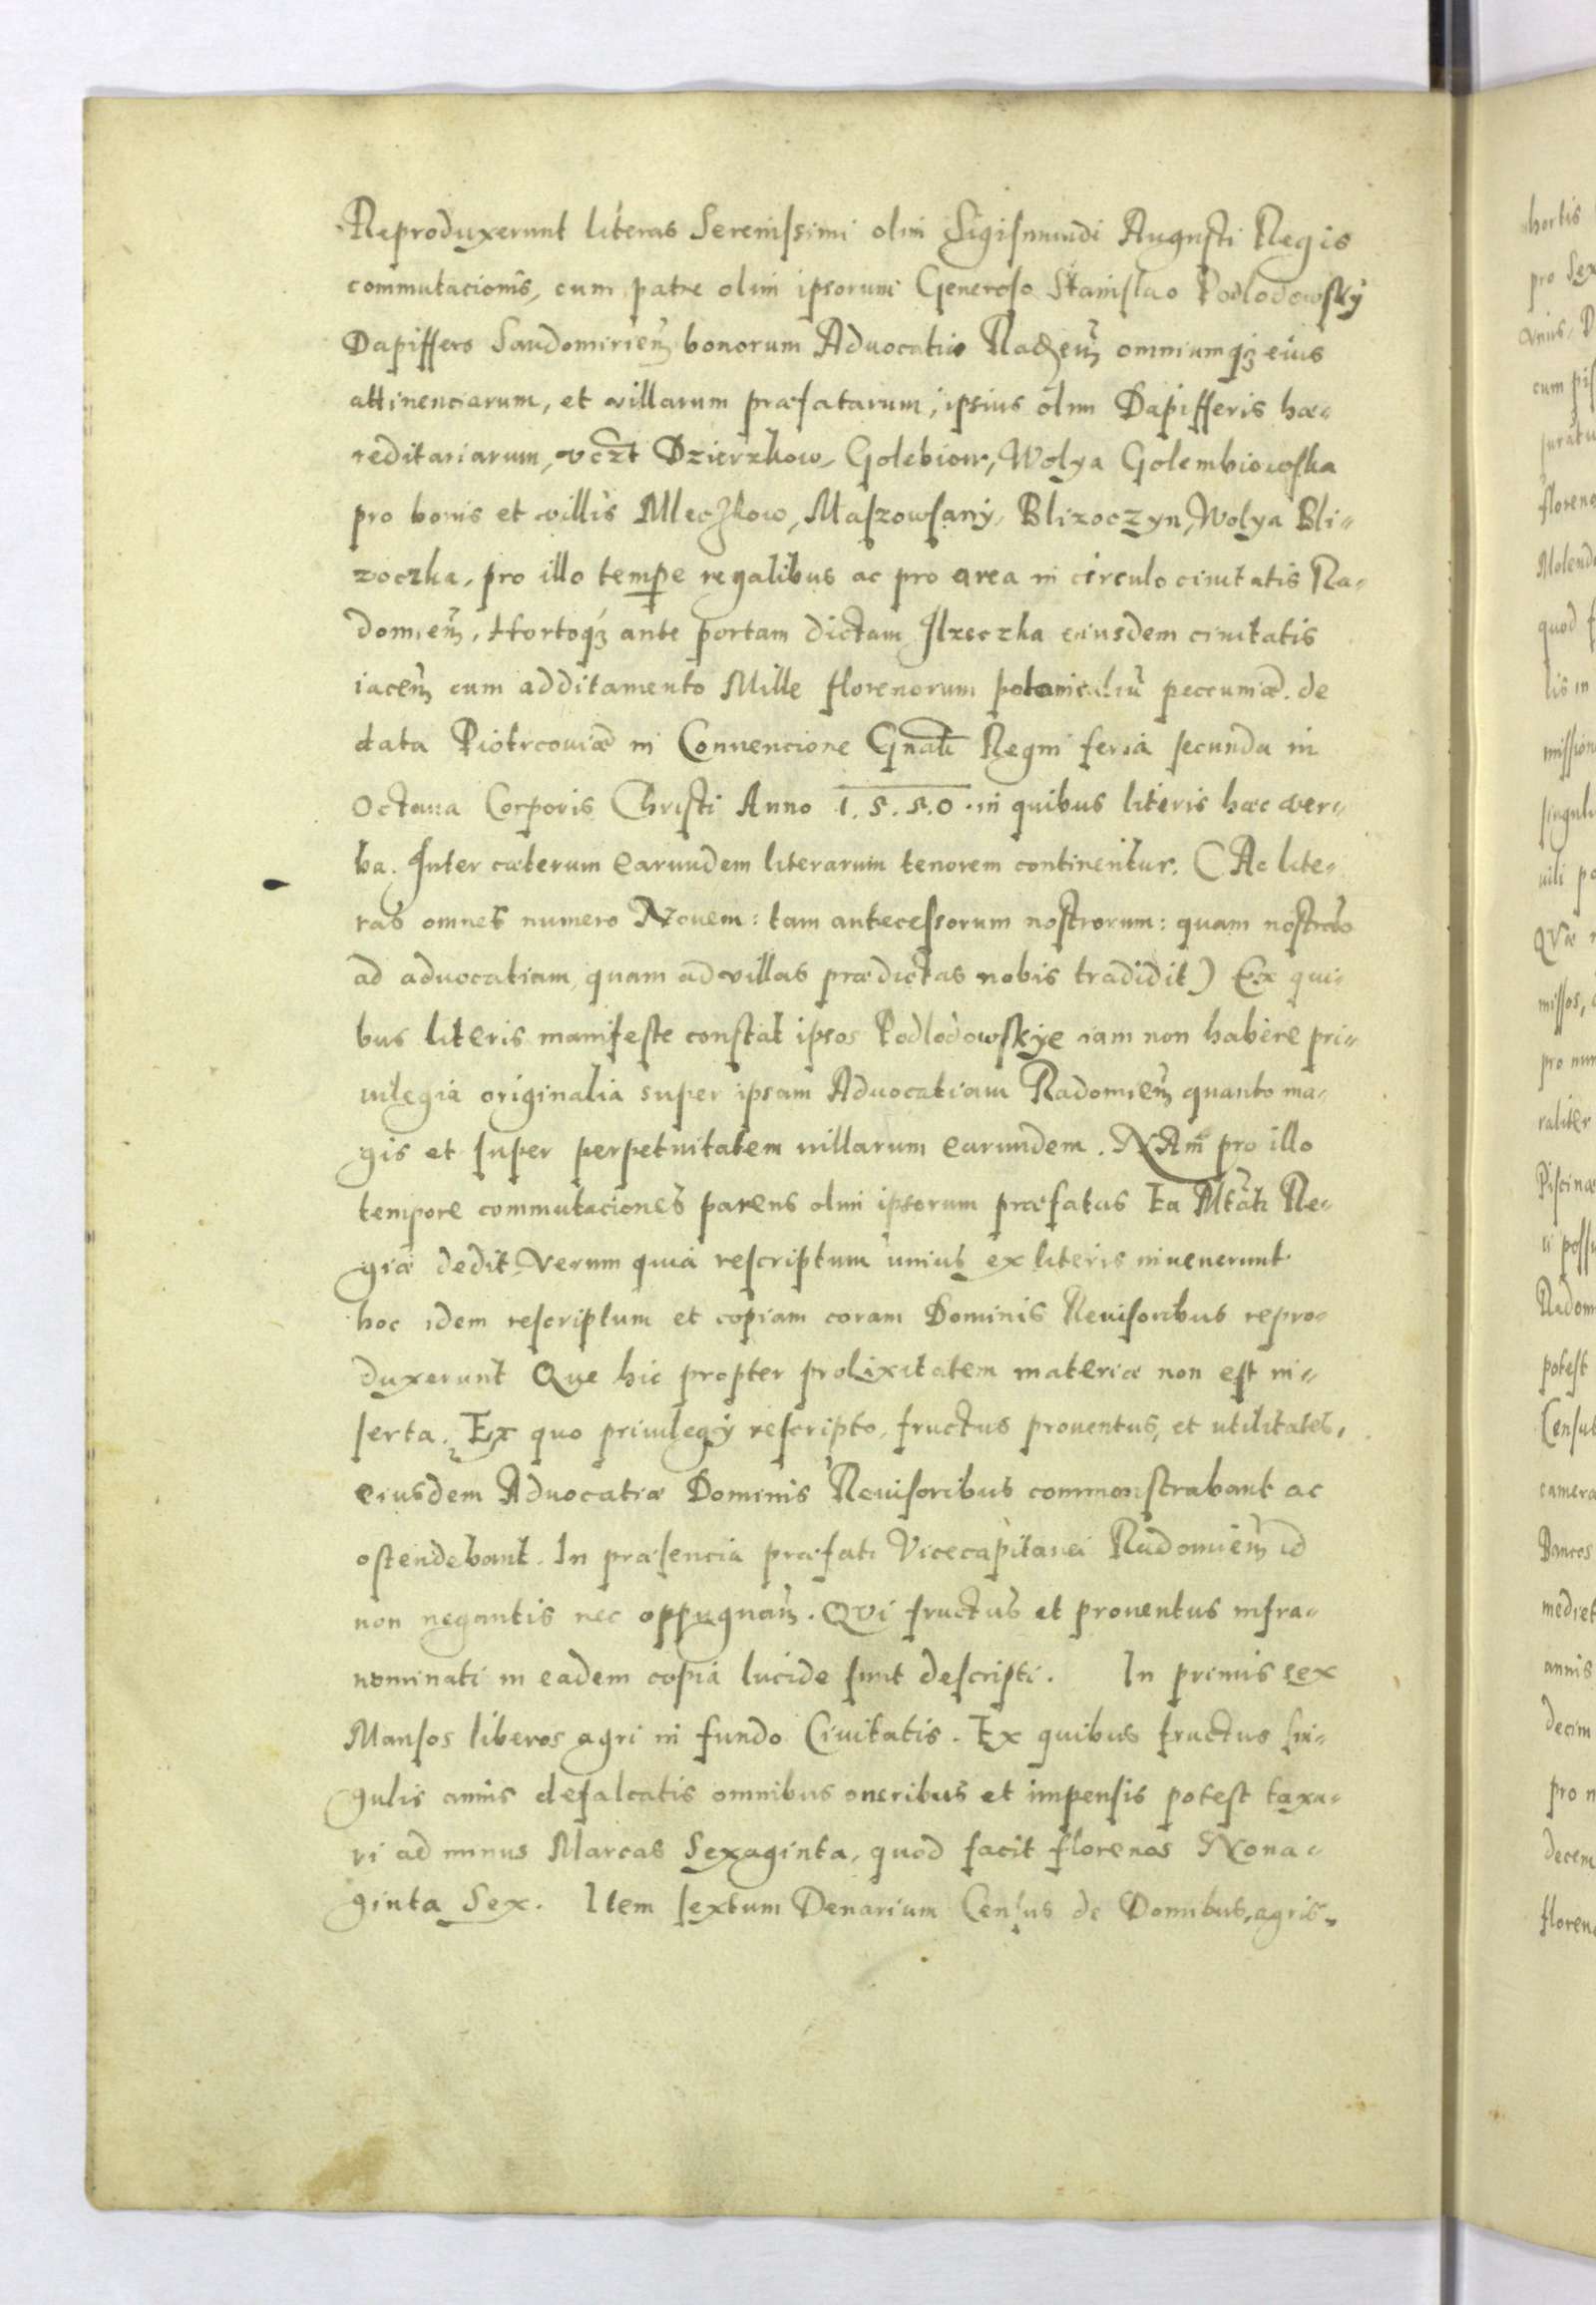 Reproduxerunt literas Serenissimi olim Sigismundi Augusti Regis
commutacionis, cum patre olim ipsorum Generoso Stanislao Podlodowsky
Dapiffero Sandomirieñ bonorum Advocatiæ Radomieñ omniumq₃ eius
attinenciarum, et villarum præfatarum, ipsius olim Dapifferis hæ-
reditariarum, vczt Dzierzkow, Golebiow, Wolya Golembiowska
pro bonis et villis Mleczkow, Maszowsany, Blizoczyn, Wolya Bli-
zoczka, pro illo tempe regalibus ac pro area in circulo civitatis Ra-
domieñ, Hortoq₃ ante portam dictam Ilzeczka eiusdem civitatis
iaceñ cum additamento Mille florenorum polonicaliũ peccuniæ. de
data Piotrcoviæ in Convencione Gnali Regni feria secunda in
Octava Corporis Christi Anno 1.5.5.0. in quibus literis hæc ver-
ba. Inter cæterum earundem literarum tenorem continentur. (Ac lite-
ras omnes numero Novem: tam antecessorum nostrorum: quam nostras
ad advocatiam, quam ad villas prædictas nobis tradidit) Ex qui-
bus literis manifeste constat ipsos Podlodowskye iam non habere pri-
uilegia originalia super ipsam Advocatiam Radomieñ quanto ma-
gis et super perpetuitatem uillarum earundem. NAm pro illo
tempore commutaciones parens olim ipsorum præfatus Ea Mtati Re-
giæ dedit. Verum quia rescriptum unius ex literis inuenerunt
hoc idem rescriptum et copiam coram Dominis Reuisoribus repro-
duxerunt Que hic propter prolixitatem materiæ non est in-
serta. Ex quo priuilegÿ rescripto, fructus prouentus, et utilitates,
eiusdem Advocatiæ Dominis Reuisoribus commonstrabant ac
ostendebant. In præsencia præfati Vicecapitanei Radomieñ id
non negantis nec oppugnañ. QVi fructus et prouentus infra-
nominati in eadem copia lucide sunt descripti. In primis sex
Mansos liberos agri in fundo Civitatis. Ex quibus fructus sin-
gulis annis defalcatis omnibus oneribus et impensis potest taxa-
ri ad minus Marcas Sexaginta, quod facit florenos Nona-
ginta Sex. Item sextum Denarium Census de Domibus, agris,
hortis
pro Sex
cum
florenos
quod
lis in
pro
Radom
potest
camera
annis
decim
pro
decem